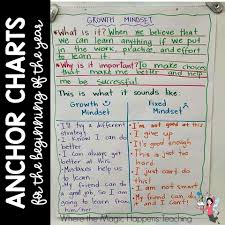 ANCHOR CHARTS
for the beginning of the year
GROWTH MINDSET
What is it? When we believe that
we can learn anything if we put
in the work, practice, and effort
to learn.
Why is it important? To make choices
that make me better and help
me be successful.
This is what it sounds like:
Growth Mindset
I'll try a different
strategy.
I know I can
do better.
I can always get
better at this.
Mistakes help us
to learn.
My friend can do
a good job, So I am
going to learn from
him/her.
Fixed Mindset
I'm not good at this
I give up
It's good enough
This is just too
hard
I just can't do
this!
I am not smart
My friend can do
it and I can't!
Where the Magic Happens Teaching